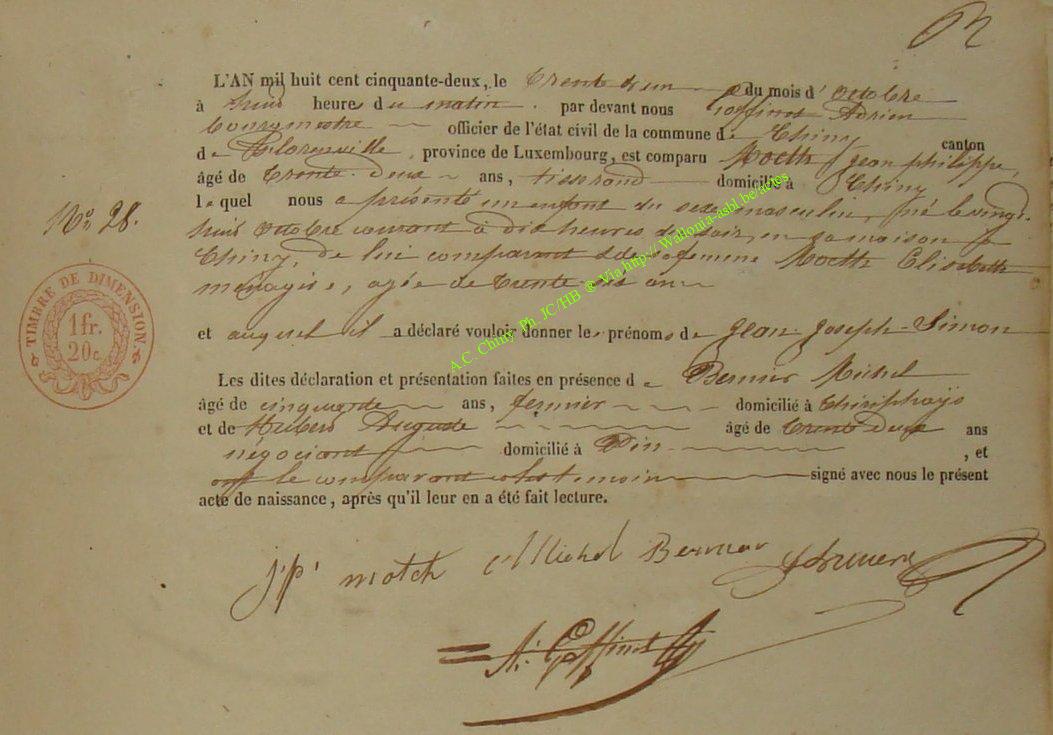 L'AN mil huit cent cinquante-deux, le Trente et un du mois d' octobre
à huit heures du matin. par devant nous Goffinet Adrien
bourgmestre officier de l'état civil de la commune de Chiny
canton
de Florenville, province de Luxembourg, est comparu Jean philippe,
âgé de trente-deux ans, tisserand domicilié à Chiny
lequel nous a présenté un enfant du sexe masculin, né le vingt-
N° 28.
huit octobre courant à dix heures du soir, en sa maison à
Chiny, de lui comparant et de sa femme Elisabeth
ménagère, agée de trente ans
TIMBRE DE DIMENSION
1 fr.
20 c.
et auquel il a déclaré vouloir donner les prénoms de Jean-Joseph-Simon
Les dites déclaration et présentation faites en présence de Michel
âgé de cinquante ans, fermier domicilié à
et de Auguste âgé de trente deux ans
négociant domicilié à Pin
, et
ont le comparant et les témoins signé avec nous le présent
acte de naissance, après qu'il leur en a été fait lecture.
j p motch Michel
A. Goffinet
A.C. Chiny Ph. JC/HB @ Via http:// Wallonia-asbl.be/actes